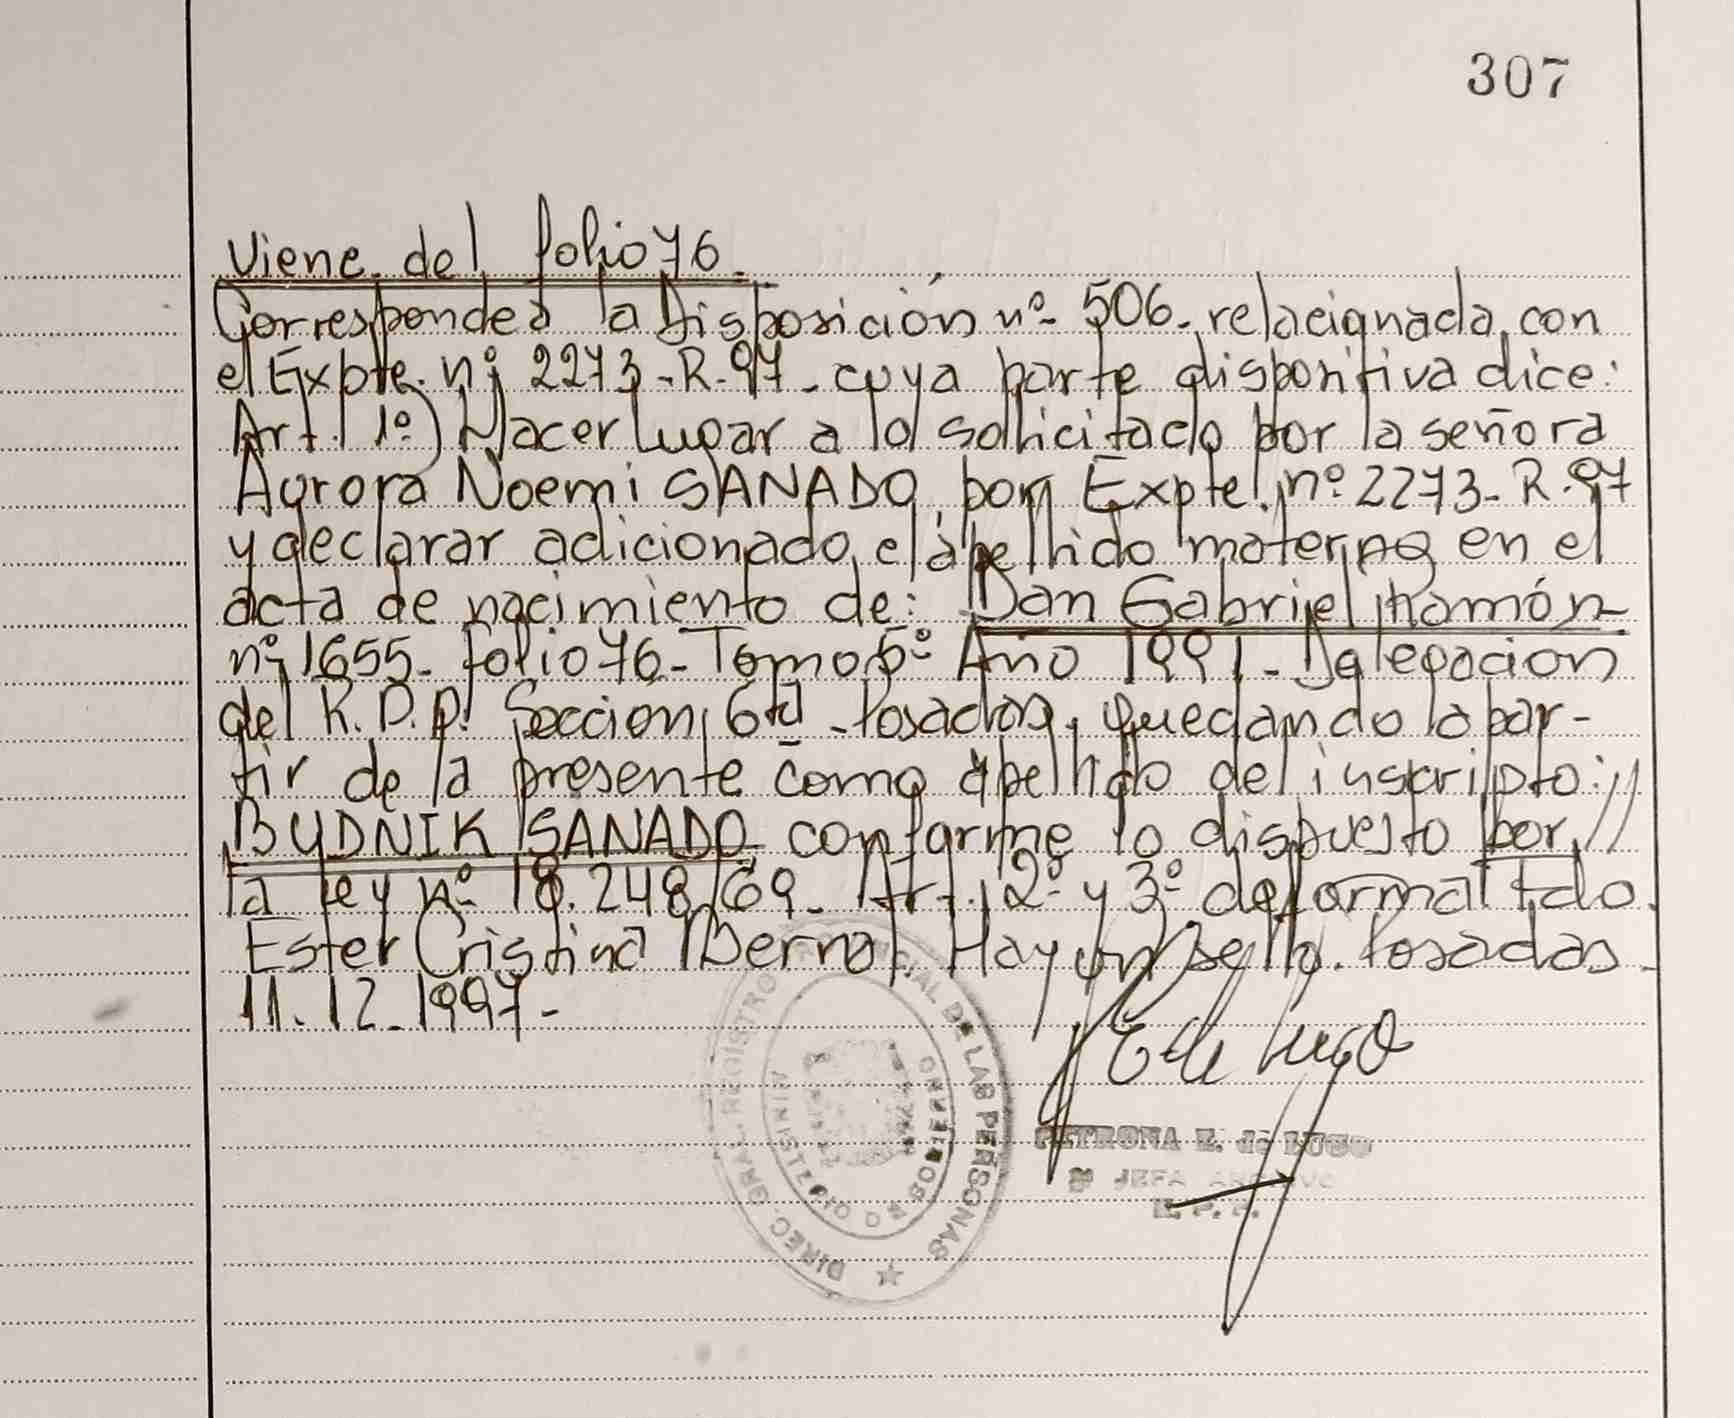 307
Viene del folio 76.
Corresponde a la Disposición nº 506. relacionada con
el Expte. nº 2273-R-97- cuya parte dispositiva dice:
Art. 1º) Hacer lugar a lo solicitado por la señora
Aurora Noemi SANADO, por Expte. nº 2273-R-97
y declarar adicionado, el apellido materno en el
acta de nacimiento de: Dan Gabriel Ramón-
nº 1655- folio 76- Tomo 5º Año 1991- Delegacion
del R.P.P. Sección 6ta - Posadas, quedando a par-
tir de la presente como apellido del inscripto://
BUDNIK SANADO, conforme lo dispuesto por//
la ley nº 18.248/69- Art. 2º y 3º de formal Fdo.
Ester Cristina Bernal. Hay un sello. Posadas
11.12.1997-
E de Lugo
PETRONA E. de LUGO
JEFA ARCHIVO
DIREC. GRAL. REGISTRO PROVINCIAL DE LAS PERSONAS
MINISTERIO DE GOBIERNO